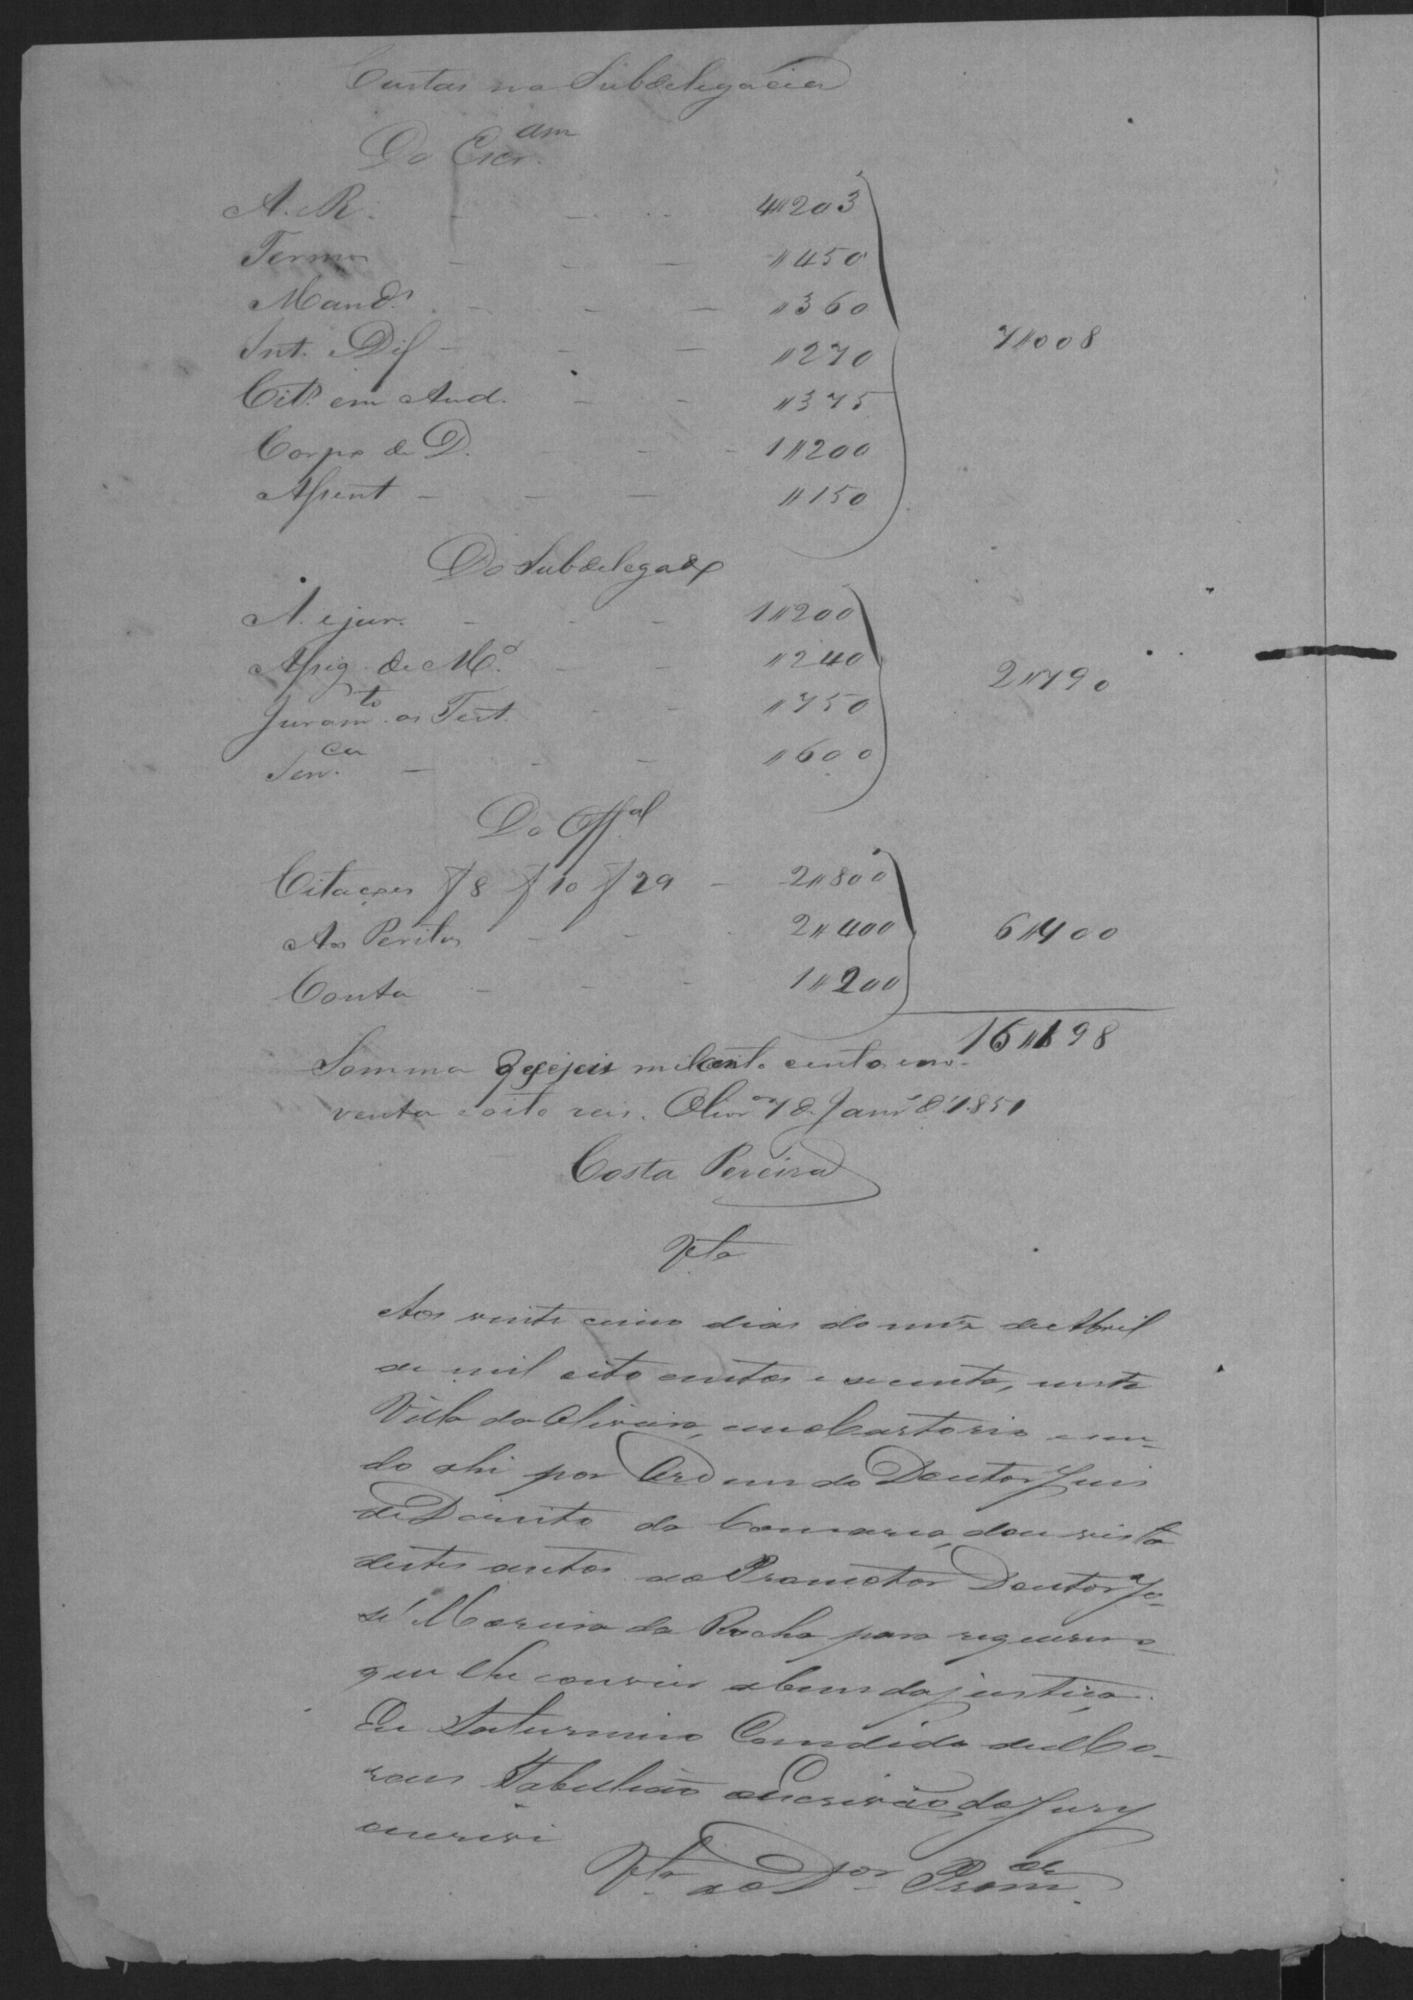 Custas na Subdelegacia
Do Escr.am
A. R. - - - 4"203
Termos - - - "450
Mand.º - - - "360
Int. Dif - - - "270
7"008
Cit. em Aud. - - "375
Corpo de D. - - - 1"200
Assent - - - "150
Do Subdelegado
A. e jur. - - - 1"200
Assig. de M.º - - "240
2"790
Juram.to as Test. - - "750
Sen.ca - - - "600
Do Off.al
Citações f 8 f 10 f 29 - 2"800
Aos Peritos - - - 2"400
6"400
Conta - - - 1"200
16"198
Somma desejeis mil cento no-
venta e oito reis. Olivr.a 18 Janr.º d' 1851
Costa Pereira
Vta
Aos vinte cinco dias do mez de Abril
de mil oito centos e secenta, nesta
Villa da Oliveira, em o Cartorio e sen-
do ahi por Ordem do Doutor Juis
de Dereito da Comarca, dou vista
destes autos ao Promotor Doutor Jo-
sé Moreira da Rocha para requerer o
que lhe convier a bem da justiça.
Eu Saturnino Candido de Mo-
raes Tabelião e Escrivão do Jury
escrevi
Vta ao D.or Prom.or